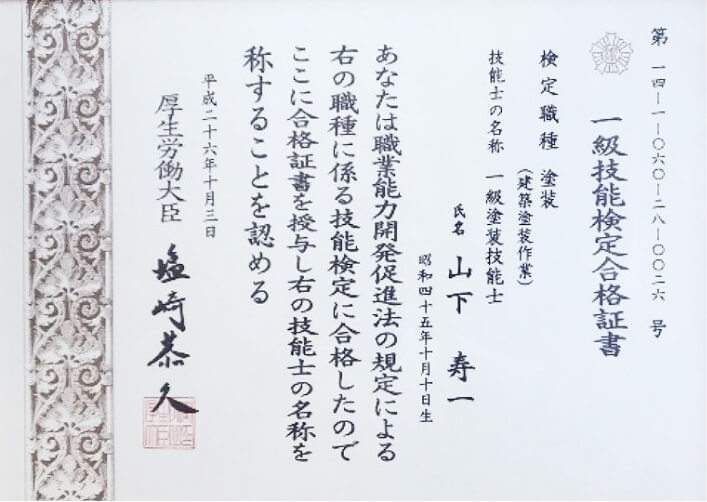 第 一四－一－〇六〇－二八－〇〇二六 号
一級技能検定合格証書
検定職種 塗装
（建築塗装作業）
技能士の名称 一級塗装技能士
氏名 山下 寿一
昭和四十五年十月十日生
あなたは職業能力開発促進法の規定による
右の職種に係る技能検定に合格したので
ここに合格証書を授与し右の技能士の名称を
称することを認める
平成二十六年十月三日
厚生労働大臣 塩崎恭久